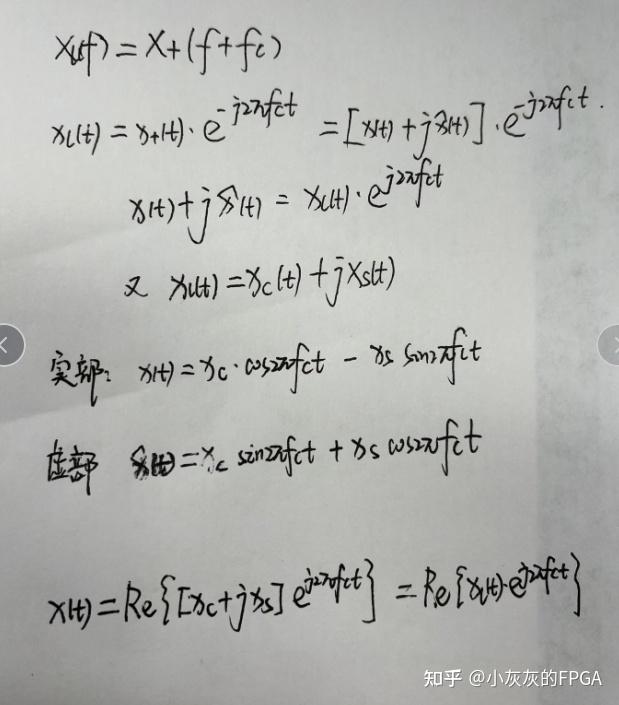 x_l(f) = X_+(f+f_c)
x_l(t) = x_+(t)·e^{-j2πf_ct} = [x(t)+jx̂(t)]·e^{-j2πf_ct}.
x(t)+jx̂(t) = x_l(t)·e^{j2πf_ct}
又 x_l(t) = x_c(t)+jx_s(t)
实部: x(t) = x_c·cos2πf_ct - x_s sin2πf_ct
虚部 x̂(t) = x_c sin2πf_ct + x_s cos2πf_ct
x(t) = Re{[x_c+jx_s]e^{j2πf_ct}} = Re{x_l(t)·e^{j2πf_ct}}
知乎 @小灰灰的FPGA